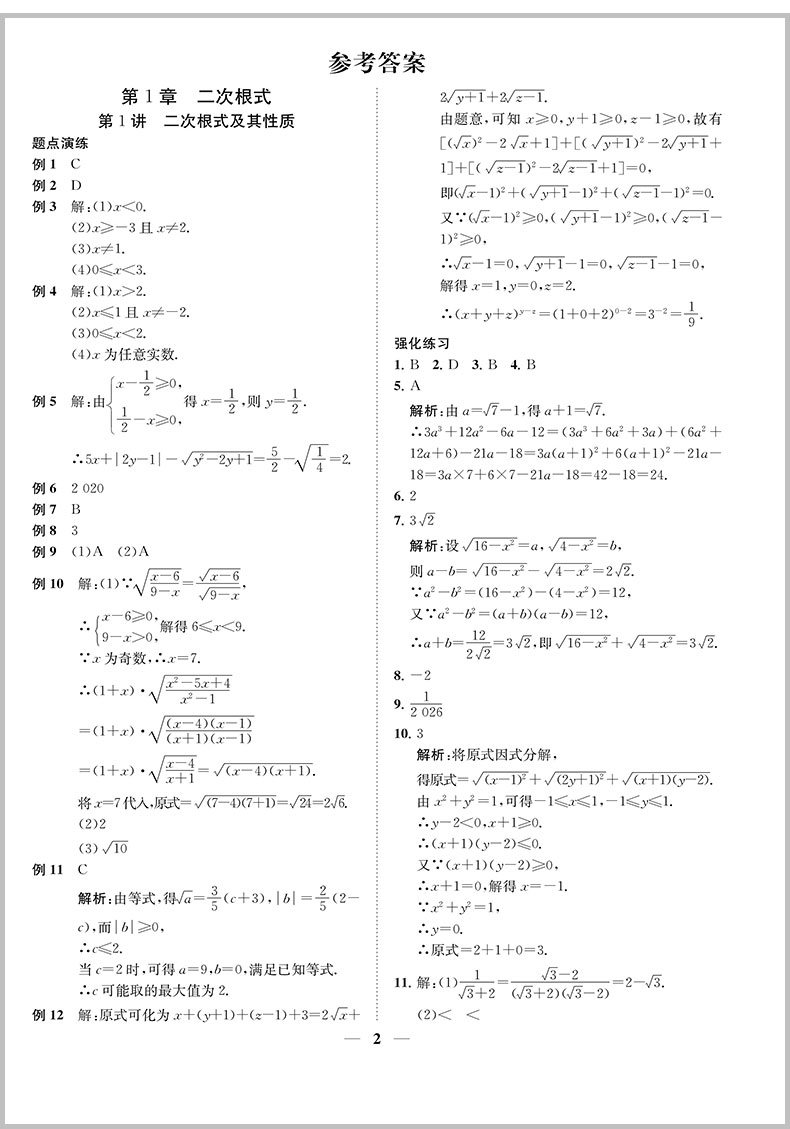 参考答案
第1章 二次根式
第1讲 二次根式及其性质
题点演练
例1 C
例2 D
例3 解:(1)x<0.
(2)x≥-3且x≠2.
(3)x≠1.
(4)0≤x<3.
例4 解:(1)x>2.
(2)x≤1且x≠-2.
(3)0≤x<2.
(4)x为任意实数.
例5 解:由{x-1/2≥0, 1/2-x≥0, 得x=1/2,则y=1/2.
∴5x+|2y-1|-√(y²-2y+1)=5/2-√(1/4)=2.
例6 2 020
例7 B
例8 3
例9 (1)A (2)A
例10 解:(1)∵√((x-6)/(9-x))=√(x-6)/√(9-x),
∴{x-6≥0, 9-x>0, 解得6≤x<9.
∵x为奇数,∴x=7.
∴(1+x)·√((x²-5x+4)/(x²-1))
=(1+x)·√((x-4)(x-1)/(x+1)(x-1))
=(1+x)·√((x-4)/(x+1))=√((x-4)(x+1)).
将x=7代入,原式=√((7-4)(7+1))=√24=2√6.
(2)2
(3)√10
例11 C
解析:由等式,得√a=3/5(c+3),|b|=2/5(2-
c),而|b|≥0,
∴c≤2.
当c=2时,可得a=9,b=0,满足已知等式.
∴c可能取的最大值为2.
例12 解:原式可化为x+(y+1)+(z-1)+3=2√x+
2√(y+1)+2√(z-1).
由题意,可知x≥0,y+1≥0,z-1≥0,故有
[(√x)²-2√x+1]+[(√(y+1))²-2√(y+1)+
1]+[(√(z-1))²-2√(z-1)+1]=0,
即(√x-1)²+(√(y+1)-1)²+(√(z-1)-1)²=0.
又∵(√x-1)²≥0,(√(y+1)-1)²≥0,(√(z-1)-
1)²≥0,
∴√x-1=0,√(y+1)-1=0,√(z-1)-1=0,
解得x=1,y=0,z=2.
∴(x+y+z)^(y-z)=(1+0+2)^(0-2)=3^(-2)=1/9.
强化练习
1. B 2. D 3. B 4. B
5. A
解析:由a=√7-1,得a+1=√7.
∴3a³+12a²-6a-12=(3a³+6a²+3a)+(6a²+
12a+6)-21a-18=3a(a+1)²+6(a+1)²-21a-
18=3a×7+6×7-21a-18=42-18=24.
6. 2
7. 3√2
解析:设√(16-x²)=a,√(4-x²)=b,
则a-b=√(16-x²)-√(4-x²)=2√2.
∵a²-b²=(16-x²)-(4-x²)=12,
又∵a²-b²=(a+b)(a-b)=12,
∴a+b=12/(2√2)=3√2,即√(16-x²)+√(4-x²)=3√2.
8. -2
9. 1/2 026
10. 3
解析:将原式因式分解,
得原式=√((x-1)²)+√((2y+1)²)+√((x+1)(y-2)).
由x²+y²=1,可得-1≤x≤1,-1≤y≤1.
∴y-2<0,x+1≥0.
∴(x+1)(y-2)≤0.
又∵(x+1)(y-2)≥0,
∴x+1=0,解得x=-1.
∵x²+y²=1,
∴y=0.
∴原式=2+1+0=3.
11. 解:(1)1/(√3+2)=(√3-2)/((√3+2)(√3-2))=2-√3.
(2)< <
— 2 —